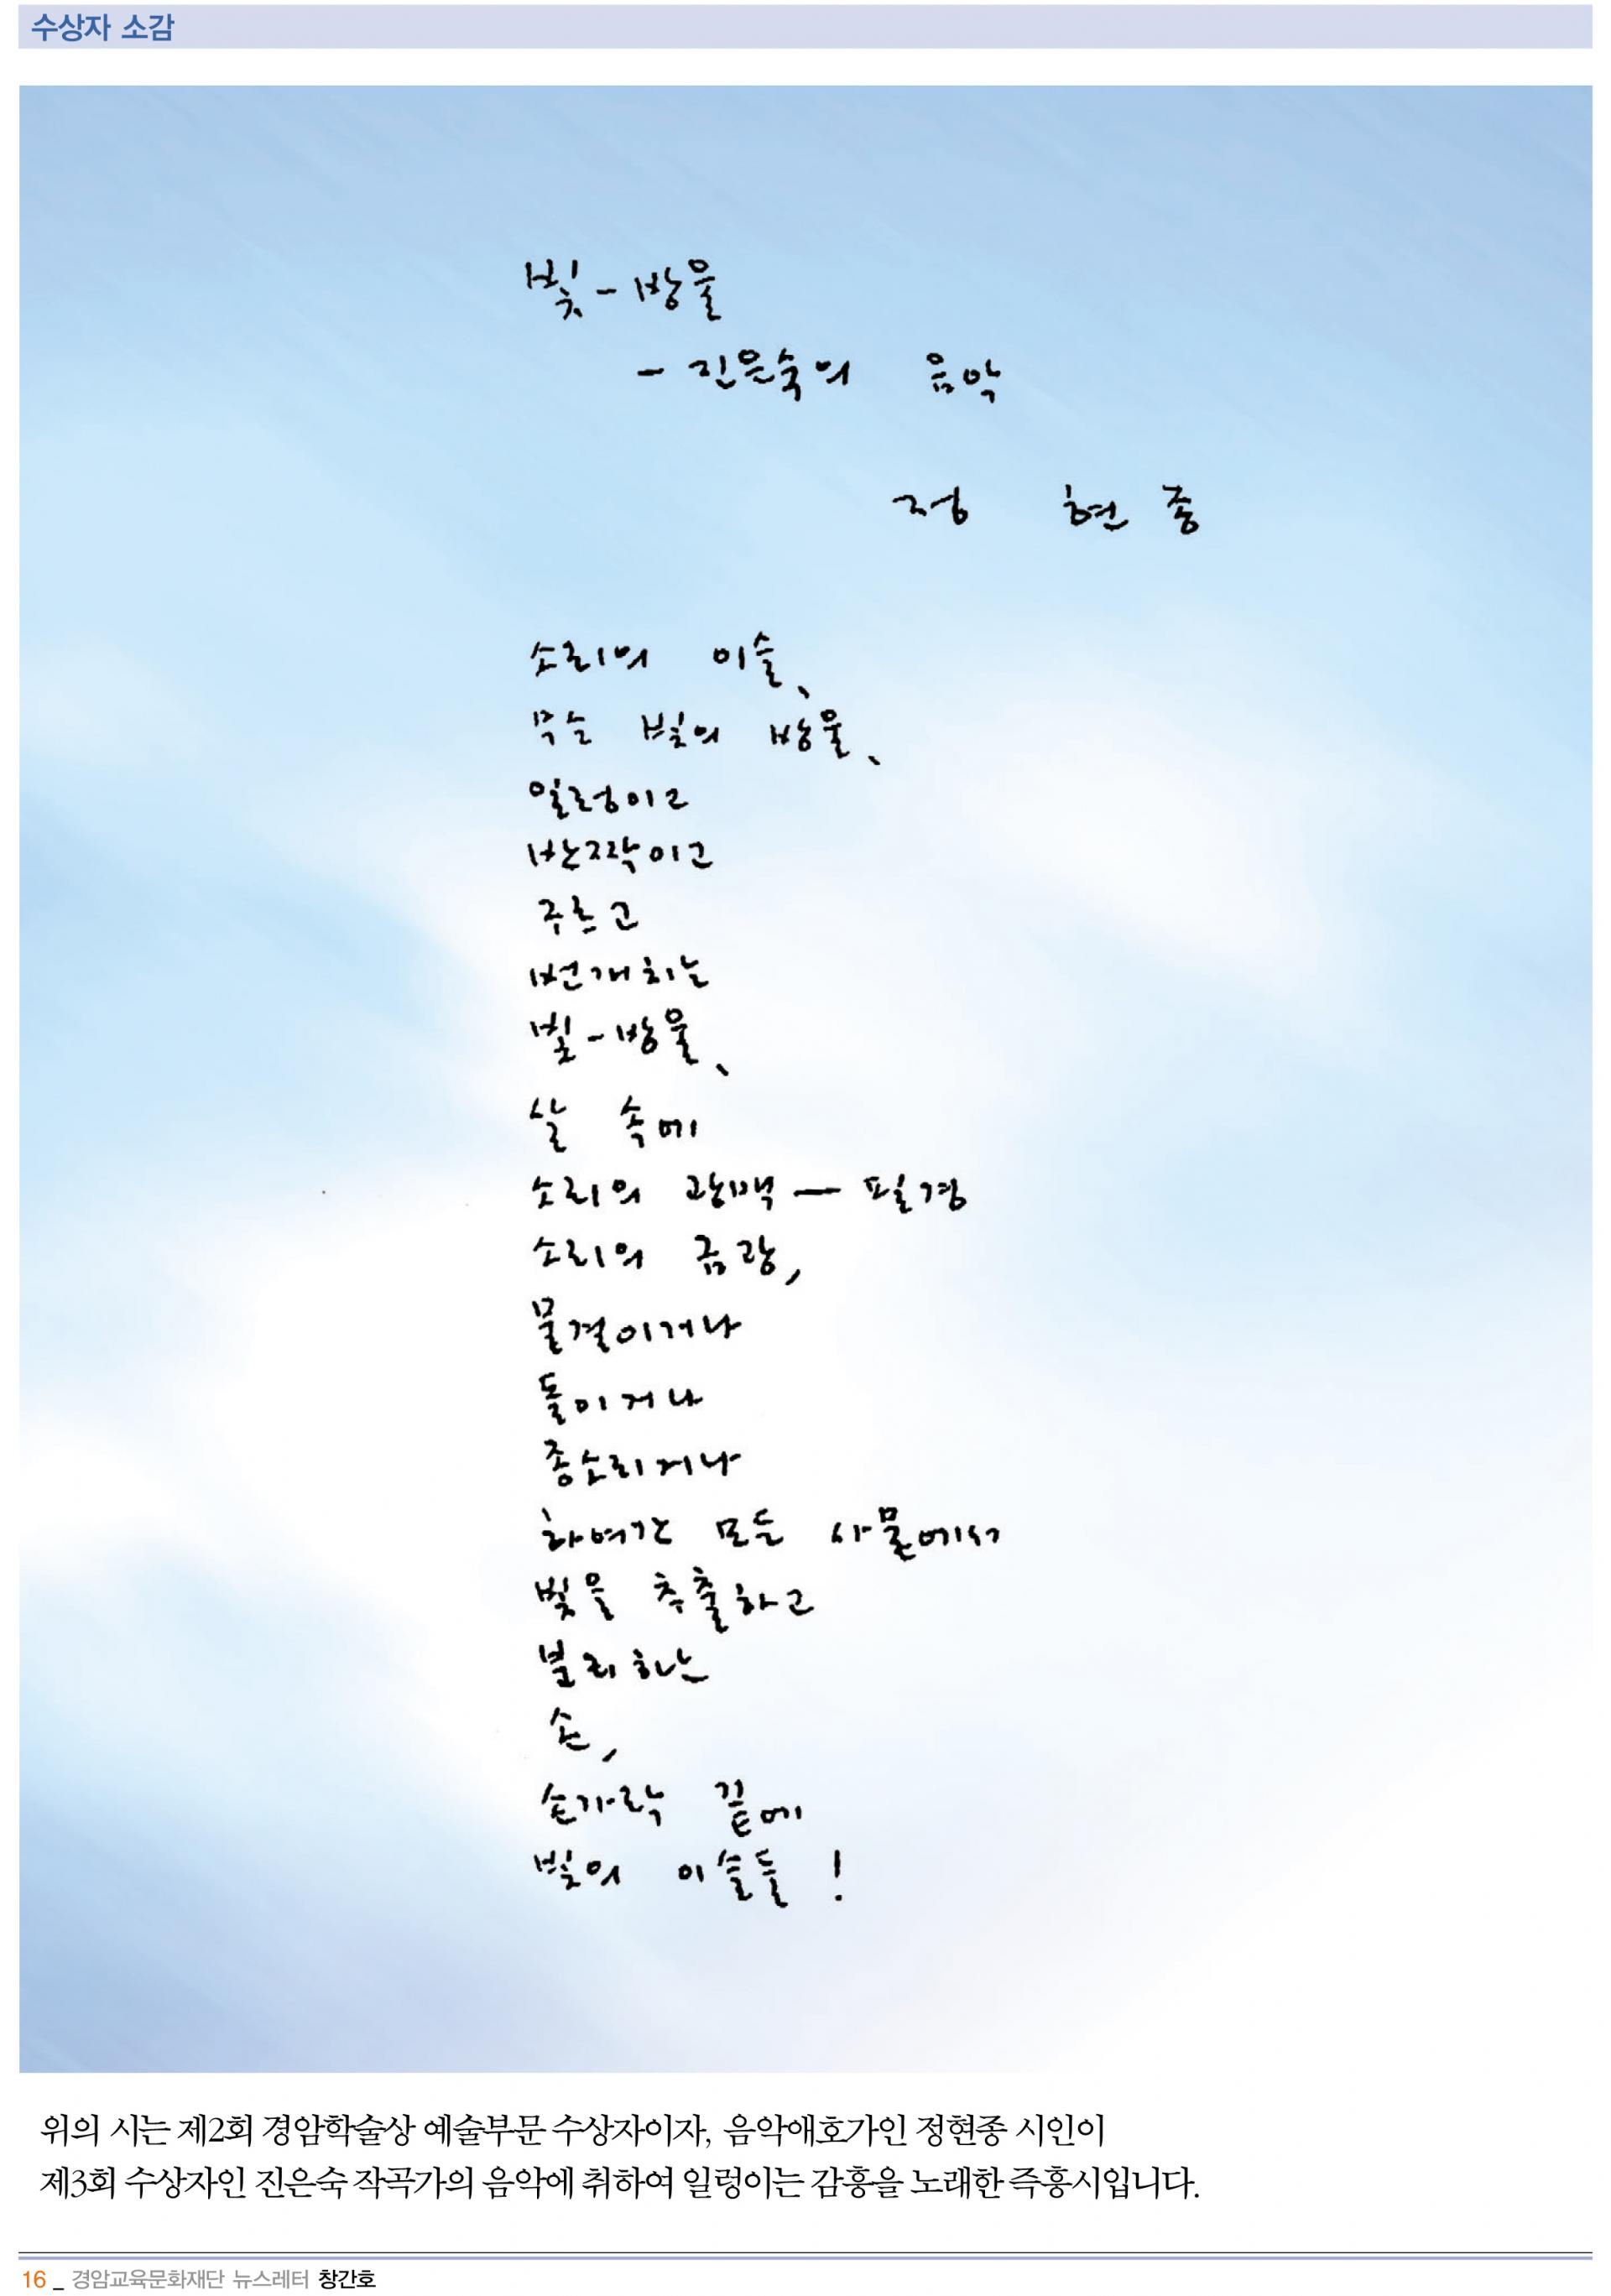 수상자 소감
빛-방울
- 진은숙의 음악
정 현종
소리의 이슬、
무슨 빛의 방울、
일렁이고
반짝이고
구르고
번개치는
빛-방울、
살 속에
소리의 광맥 — 필경
소리의 금광,
물결이거나
돌이거나
종소리거나
하여간 모든 사물에서
빛을 추출하고
분리하는
손,
손가락 끝에
빛의 이슬들 !
위의 시는 제2회 경암학술상 예술부문 수상자이자, 음악애호가인 정현종 시인이
제3회 수상자인 진은숙 작곡가의 음악에 취하여 일렁이는 감흥을 노래한 즉흥시입니다.
16 _ 경암교육문화재단 뉴스레터 창간호